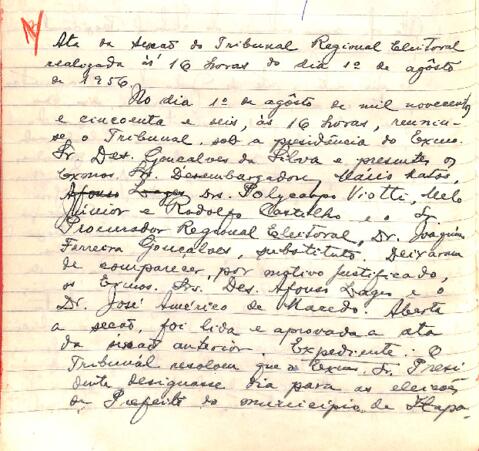 Ata da secão do Tribunal Regional Eleitoral
realizada às 16 horas do dia 1º de agôsto
de 1956
No dia 1º de agôsto de mil novecentos
e cincoenta e seis, às 16 horas, reuniu-
se o Tribunal, sob a presidência do Exmo.
Sr. Des. Goncalves da Silva e presentes os
Exmos. Srs. Desembargador, Mário Matos,
Afonso Lages, Drs. Polycarpo Viotti, Melo
Júnior e Rodolfo Castilho e o Sr.
Procurador Regional Eleitoral, Dr. Joaquim
Ferreira Goncalves, substituto. Deixaram
de comparecer, por motivo justificado,
os Exmos. Srs. Des. Afonso Lages e o
Dr. José Américo de Macedo. Aberta
a secão, foi lida e aprovada a ata
da secão anterior. Expediente: O
Tribunal resolveu que o Exmo. Sr. Presi
dente designasse dia para as eleicões
de Prefeito do município de Itapa-